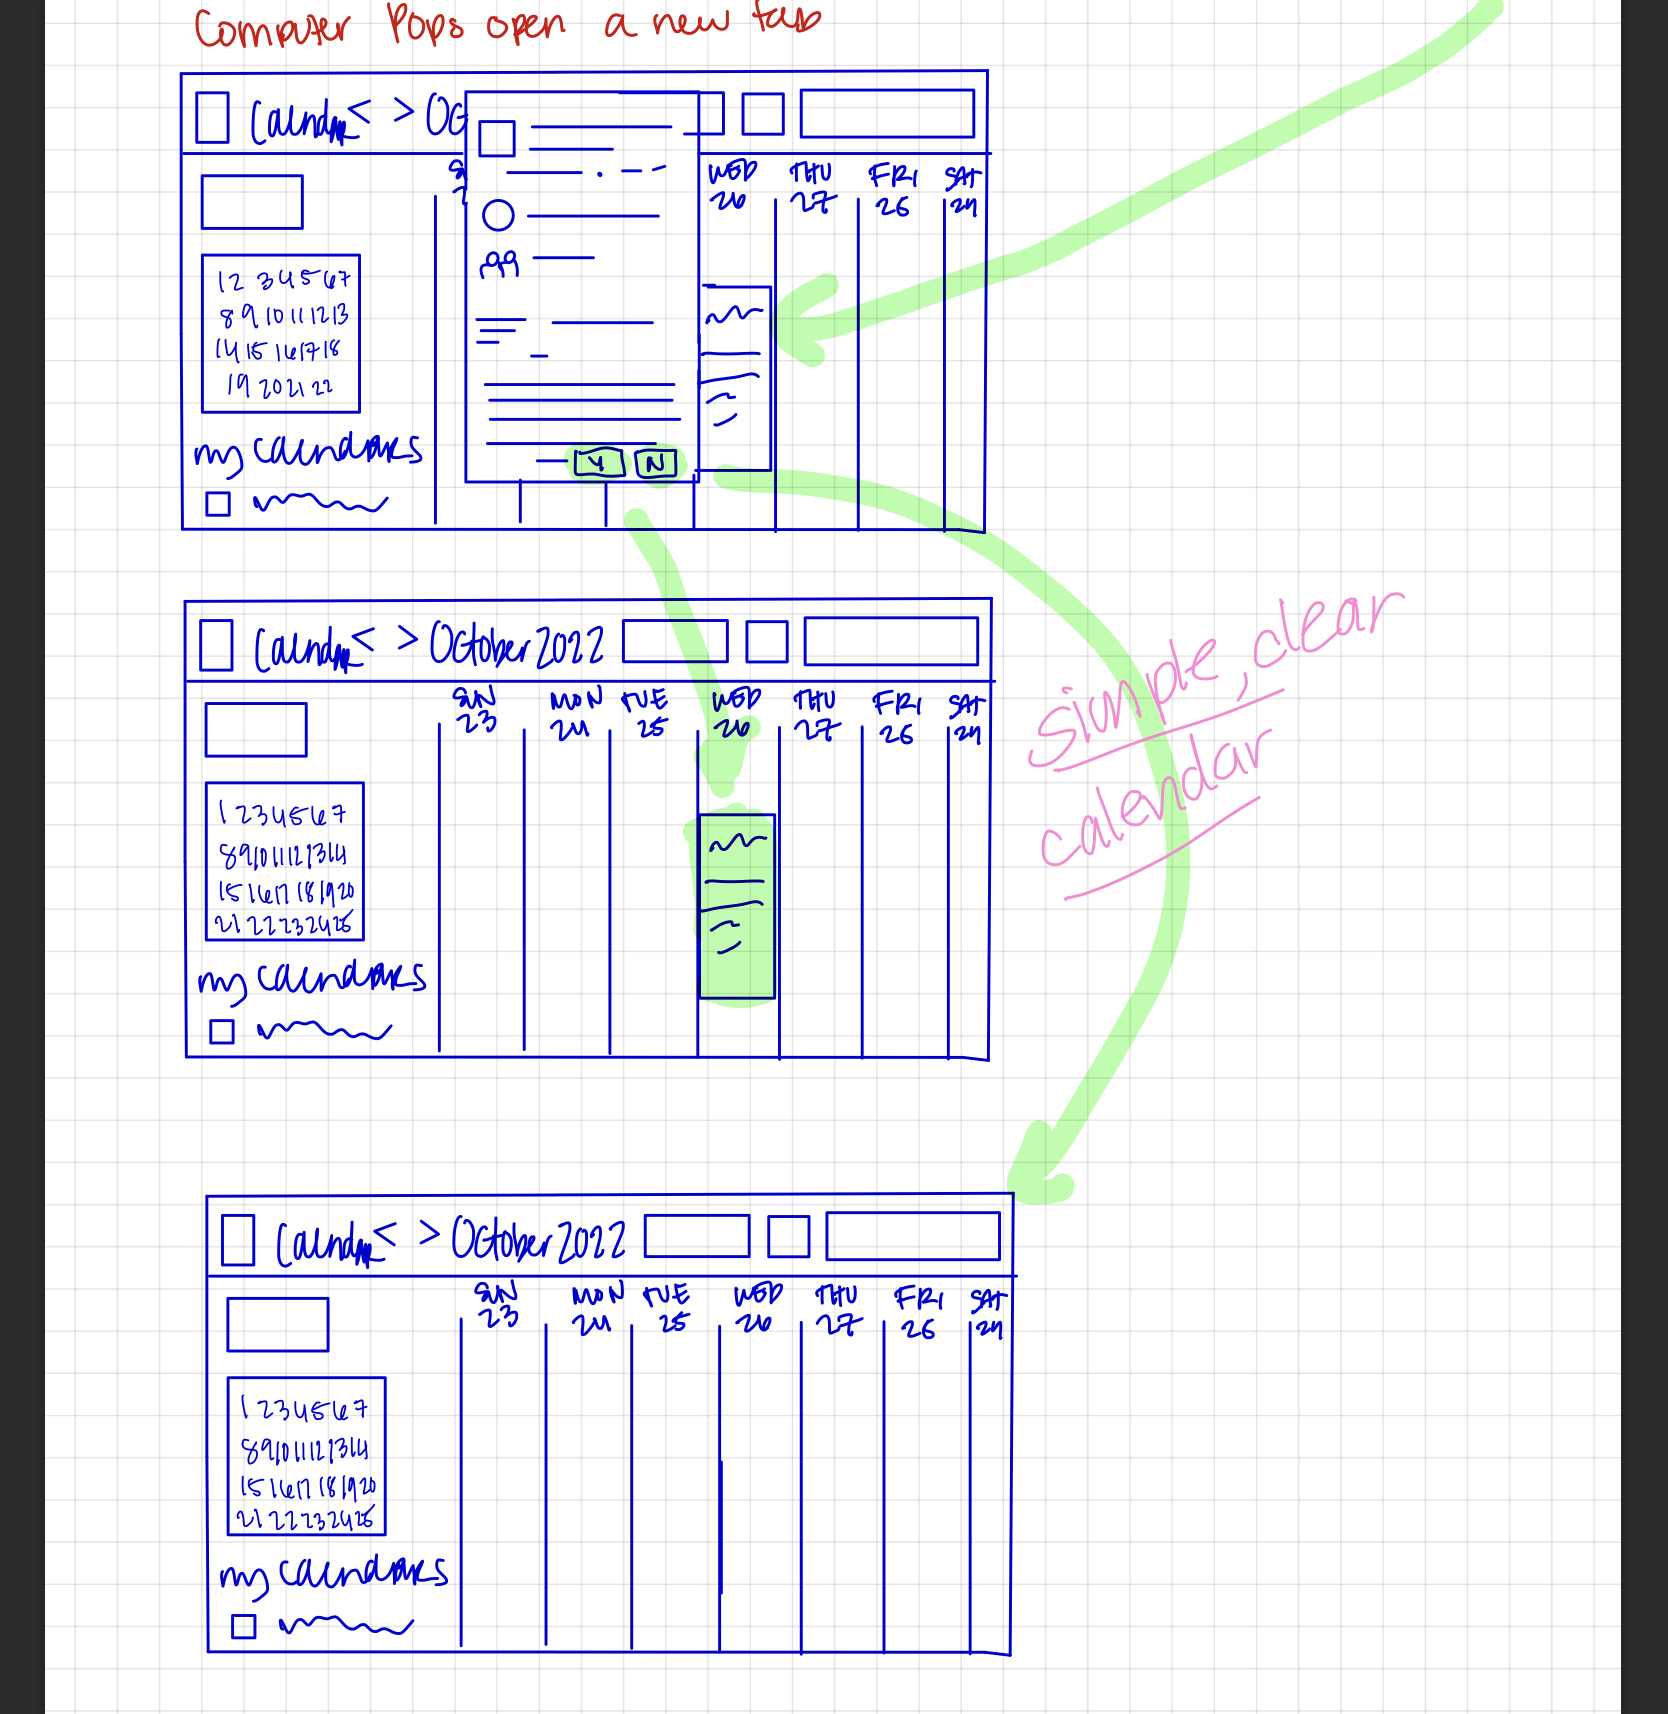 Computer Pops open a new tab
Calendar < > Oc
WED THU FRI SAT
26 27 28 29
1 2 3 4 5 6 7
8 9 10 11 12 13
14 15 16 17 18
19 20 21 22
my calendars
Y N
Calendar < > October 2022
SUN MON TUE WED THU FRI SAT
23 24 25 26 27 28 29
1 2 3 4 5 6 7
8 9 10 11 12 13 14
15 16 17 18 19 20
21 22 23 24 25
my calendars
simple, clear
calendar
Calendar < > October 2022
SUN MON TUE WED THU FRI SAT
23 24 25 26 27 28 29
1 2 3 4 5 6 7
8 9 10 11 12 13 14
15 16 17 18 19 20
21 22 23 24 25
my calendars